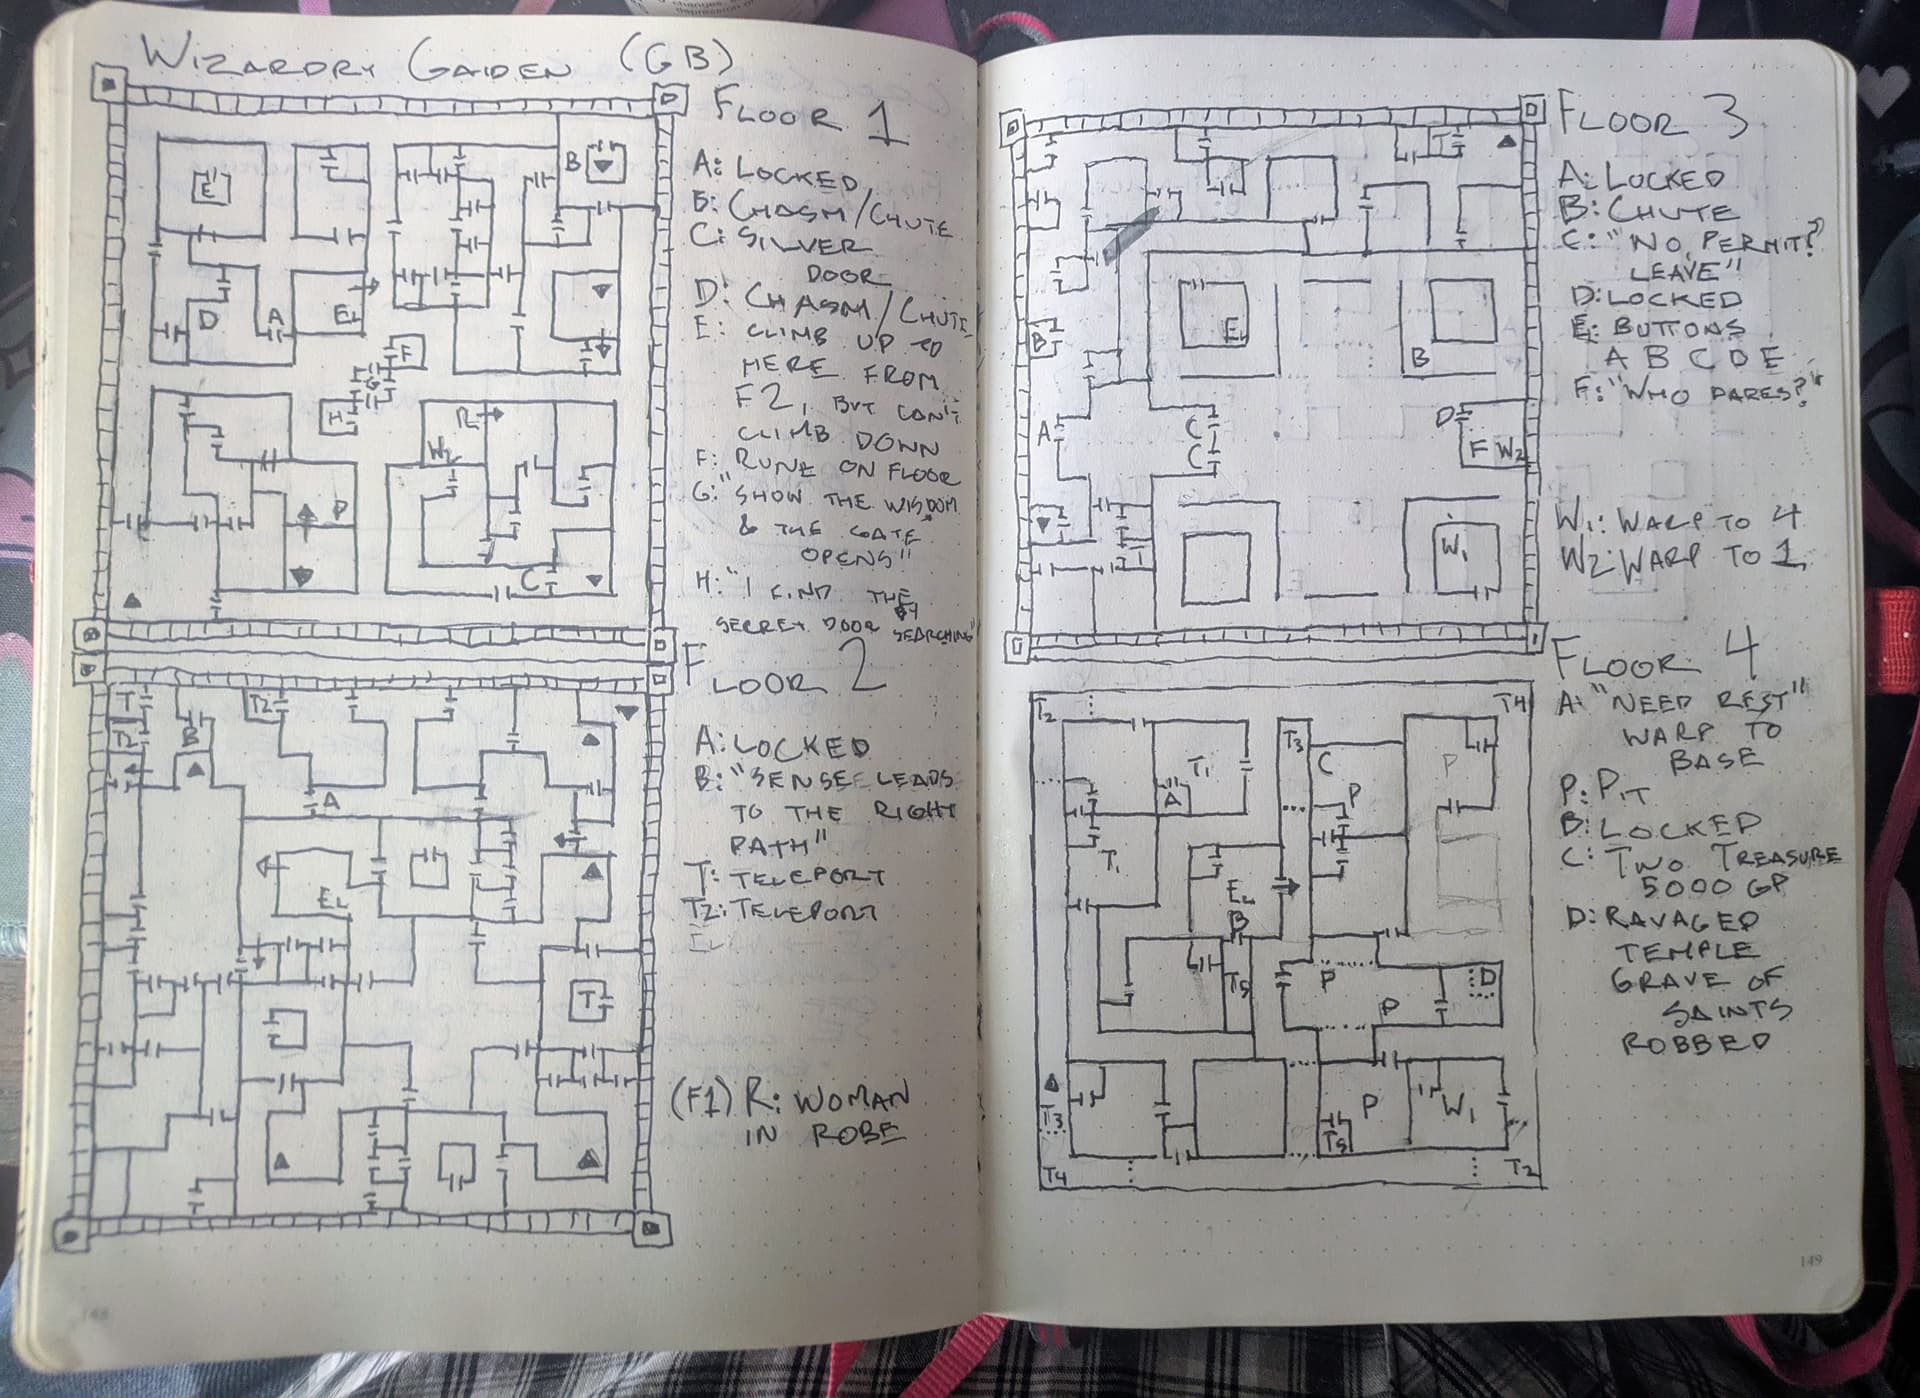 changes, such as
depression or
WIZARDRY GAIDEN (GB)
FLOOR 1
A: LOCKED
B: CHASM/CHUTE
C: SILVER
DOOR
D: CHASM/CHUTE
E: CLIMB UP TO
HERE FROM
F2, BUT CAN'T
CLIMB DOWN
F: RUNE ON FLOOR
G: "SHOW THE WISDOM
& THE GATE
OPENS"
H: "I FIND THE
SECRET DOOR BY SEARCHING"
E
B
D
A
EL
F
G
H
R
W2
P
C
FLOOR 2
A: LOCKED
B: "SENSE LEADS
TO THE RIGHT
PATH"
T: TELEPORT
T2: TELEPORT
EL
(F1) R: WOMAN
IN ROBE
T
T2
T2
B
A
EL
T
FLOOR 3
A: LOCKED
B: CHUTE
C: "NO PERMIT?
LEAVE"
D: LOCKED
E: BUTTONS
A B C D E
F: "WHO DARES?"
W1: WARP TO 4
W2: WARP TO 1
T
B
EL
B
A
C
C
D
F W2
T
W1
FLOOR 4
A: "NEED REST"
WARP TO
BASE
P: PIT
B: LOCKED
C: TWO TREASURE
5000 GP
D: RAVAGED
TEMPLE
GRAVE OF
SAINTS
ROBBED
T2
T4
T1
A
T3
C
P
P
T1
EL
B
T5
P
P
D
T3
P
T5
W1
T4
T2
148
149